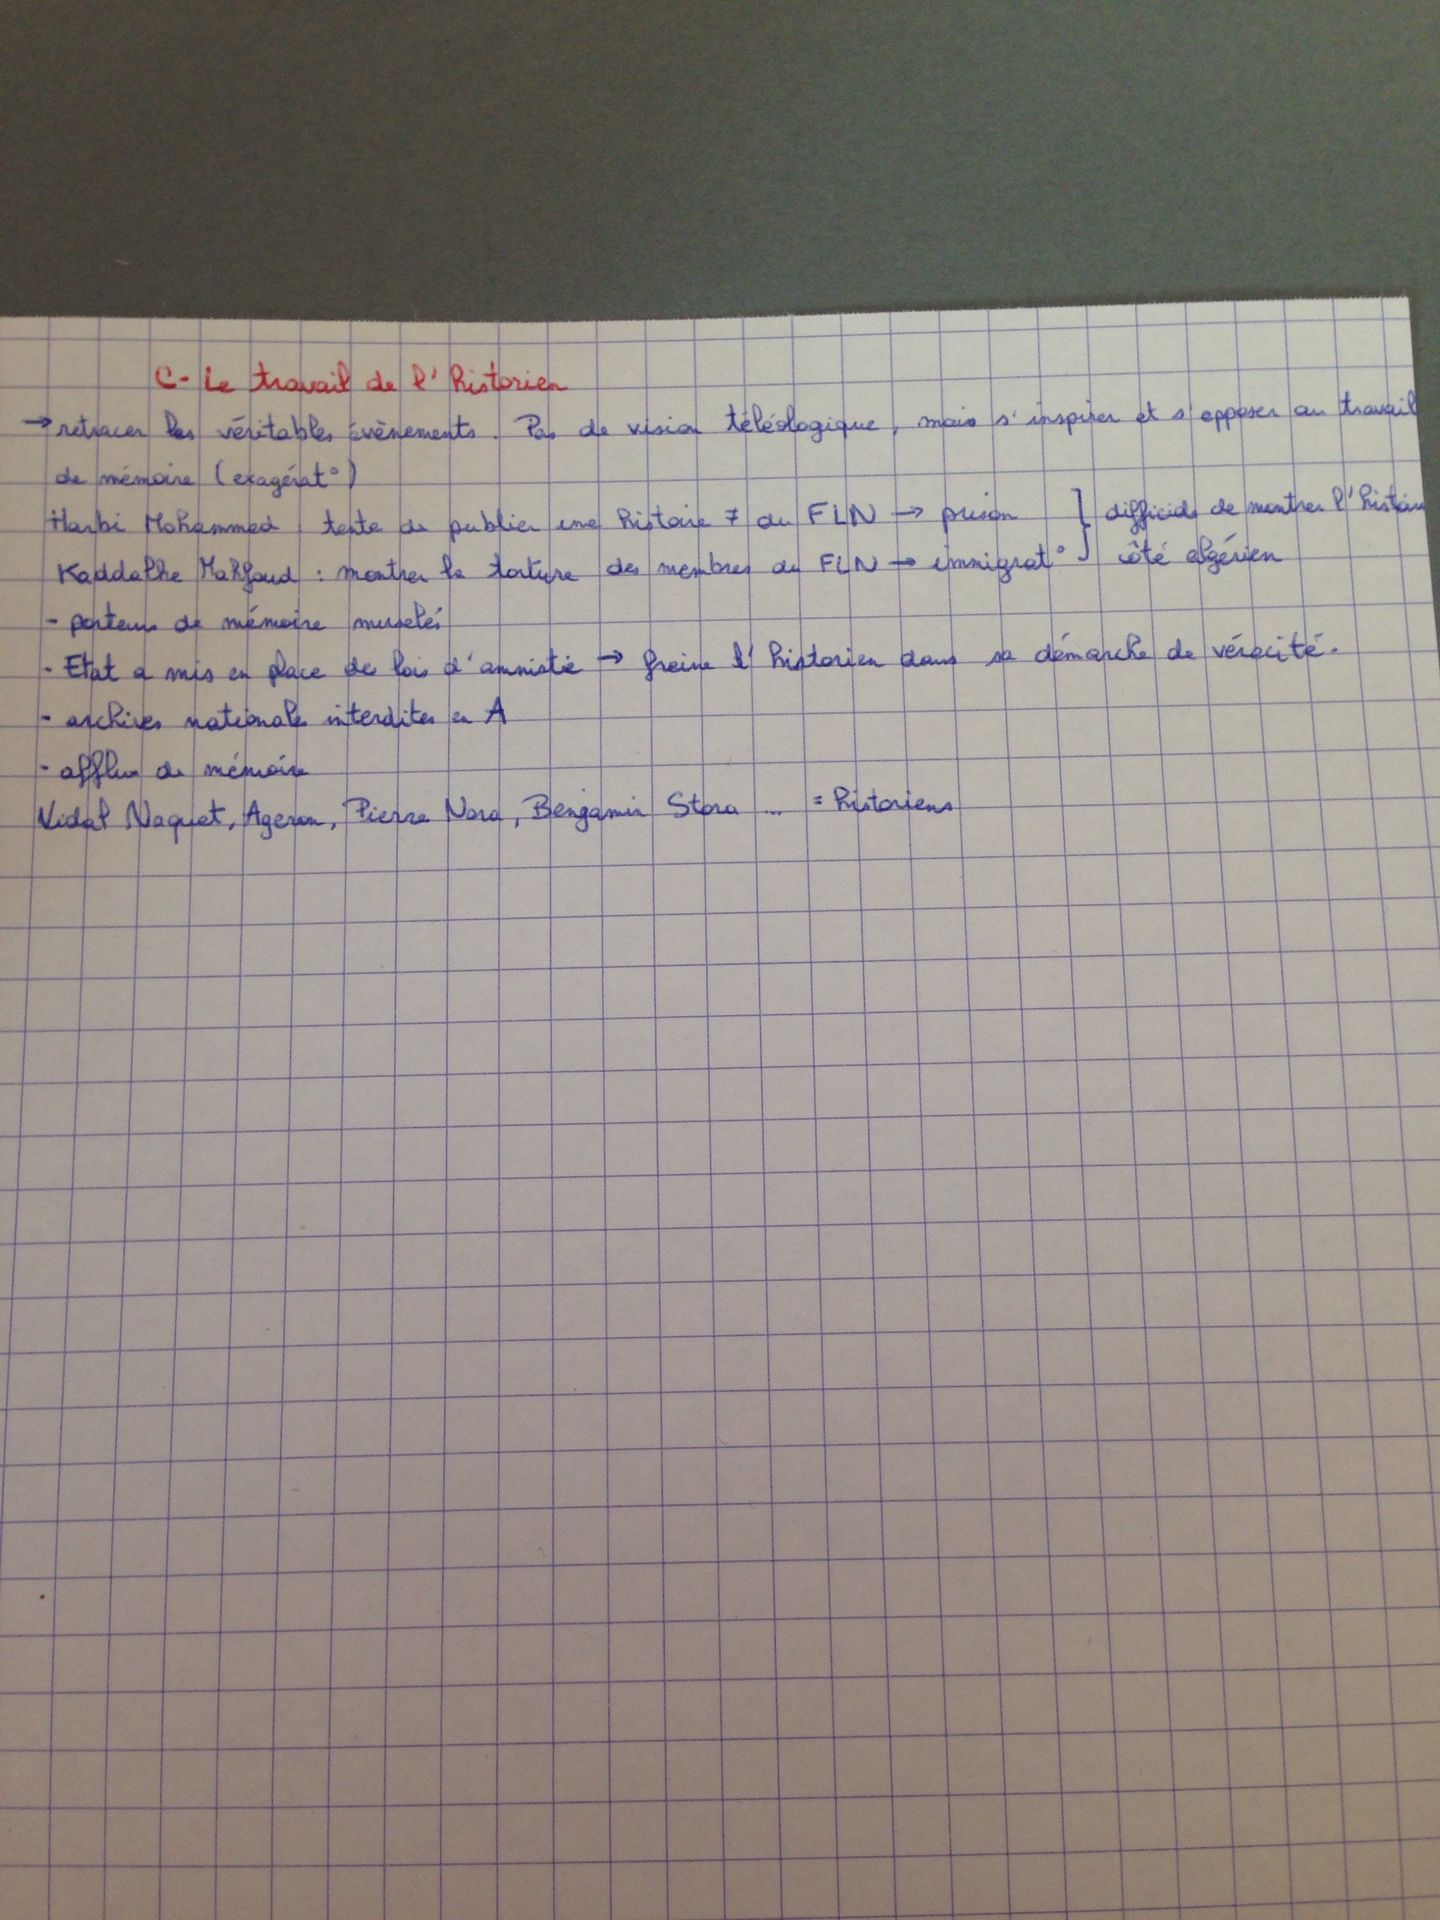 C- Le travail de l'historien
→ retracer les véritables évènements. Pas de vision téléologique, mais s'inspirer et s'opposer au travail
de mémoire (exagérat°)
Harbi Mohammed : tente de publier une histoire ≠ du FLN → prison } difficile de montrer l'histoire
Kaddalhe Mahfoud : montrer la torture des membres du FLN → immigrat° } côté algérien
- porteurs de mémoire muselés
- Etat a mis en place des lois d'amnistie → freine l'historien dans sa démarche de véracité.
- archives nationales interdites en A
- afflux de mémoire
Vidal Naquet, Ageron, Pierre Nora, Bengamin Stora ... = historiens